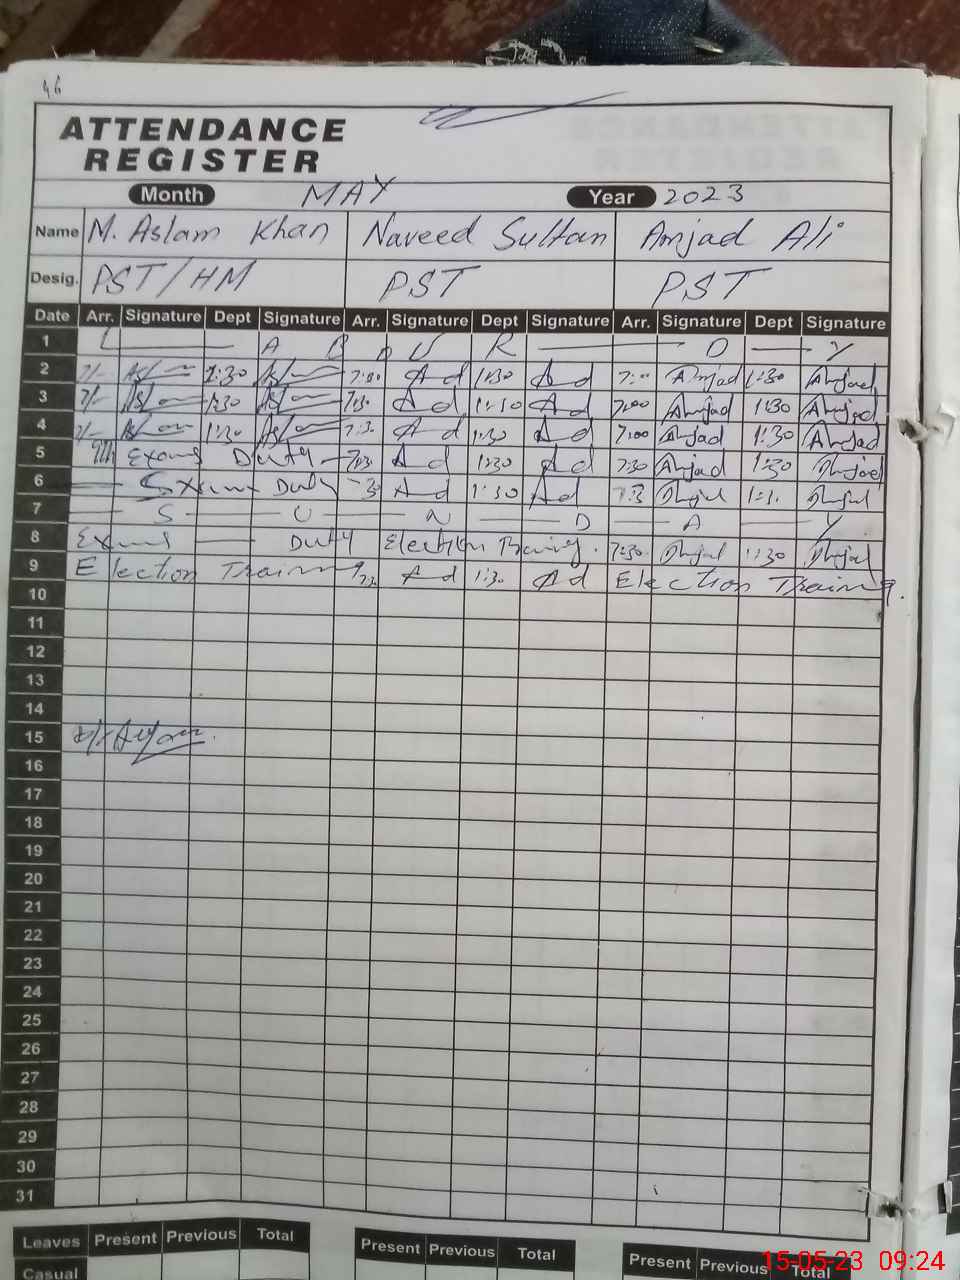 46
ATTENDANCE
REGISTER
Month MAY Year 2023
Name M. Aslam Khan Naveed Sultan Amjad Ali
Desig. PST/HM PST PST
Date Arr. Signature Dept Signature Arr. Signature Dept Signature Arr. Signature Dept Signature
1 L A B O U R D Y
2 7/- 1:30 7:30 Ad 1:30 Ad 7:00 Amjad 1:30 Amjad
3 7/- 1:30 7:30 Ad 1:30 Ad 7:00 Amjad 1:30 Amjad
4 7/- 1:30 7:30 Ad 1:30 Ad 7:00 Amjad 1:30 Amjad
5 9th Exams Duty 7:30 Ad 1:30 Ad 7:30 Amjad 1:30 Amjad
6 Duty 7:30 Ad 1:30 Ad Amjad Amjad
7 S U N D A Y
8 Exams Duty Election Training. 7:30 Amjad 1:30 Amjad
9 Election Training 7:30 Ad 1:30 Ad Election Training.
10
11
12
13
14
15
16
17
18
19
20
21
22
23
24
25
26
27
28
29
30
31
Leaves Present Previous Total Present Previous Total Present Previous Total
Casual
15-05-23 09:24